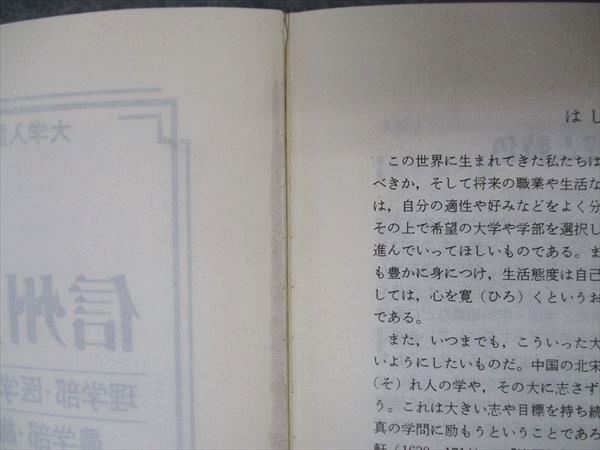 大学入
信州
理学部・医学
農学部・繊
はし
この世界に生まれてきた私たちは
べきか，そして将来の職業や生活な
は，自分の適性や好みなどをよく分
その上で希望の大学や学部を選択し
進んでいってほしいものである。ま
も豊かに身につけ，生活態度は自己
しては，心を寛（ひろ）くというお
である。
また，いつまでも，こういった大
いようにしたいものだ。中国の北宋
（そ）れ人の学や，その大に志さず
う。これは大きい志や目標を持ち続
真の学問に励もうということであろ